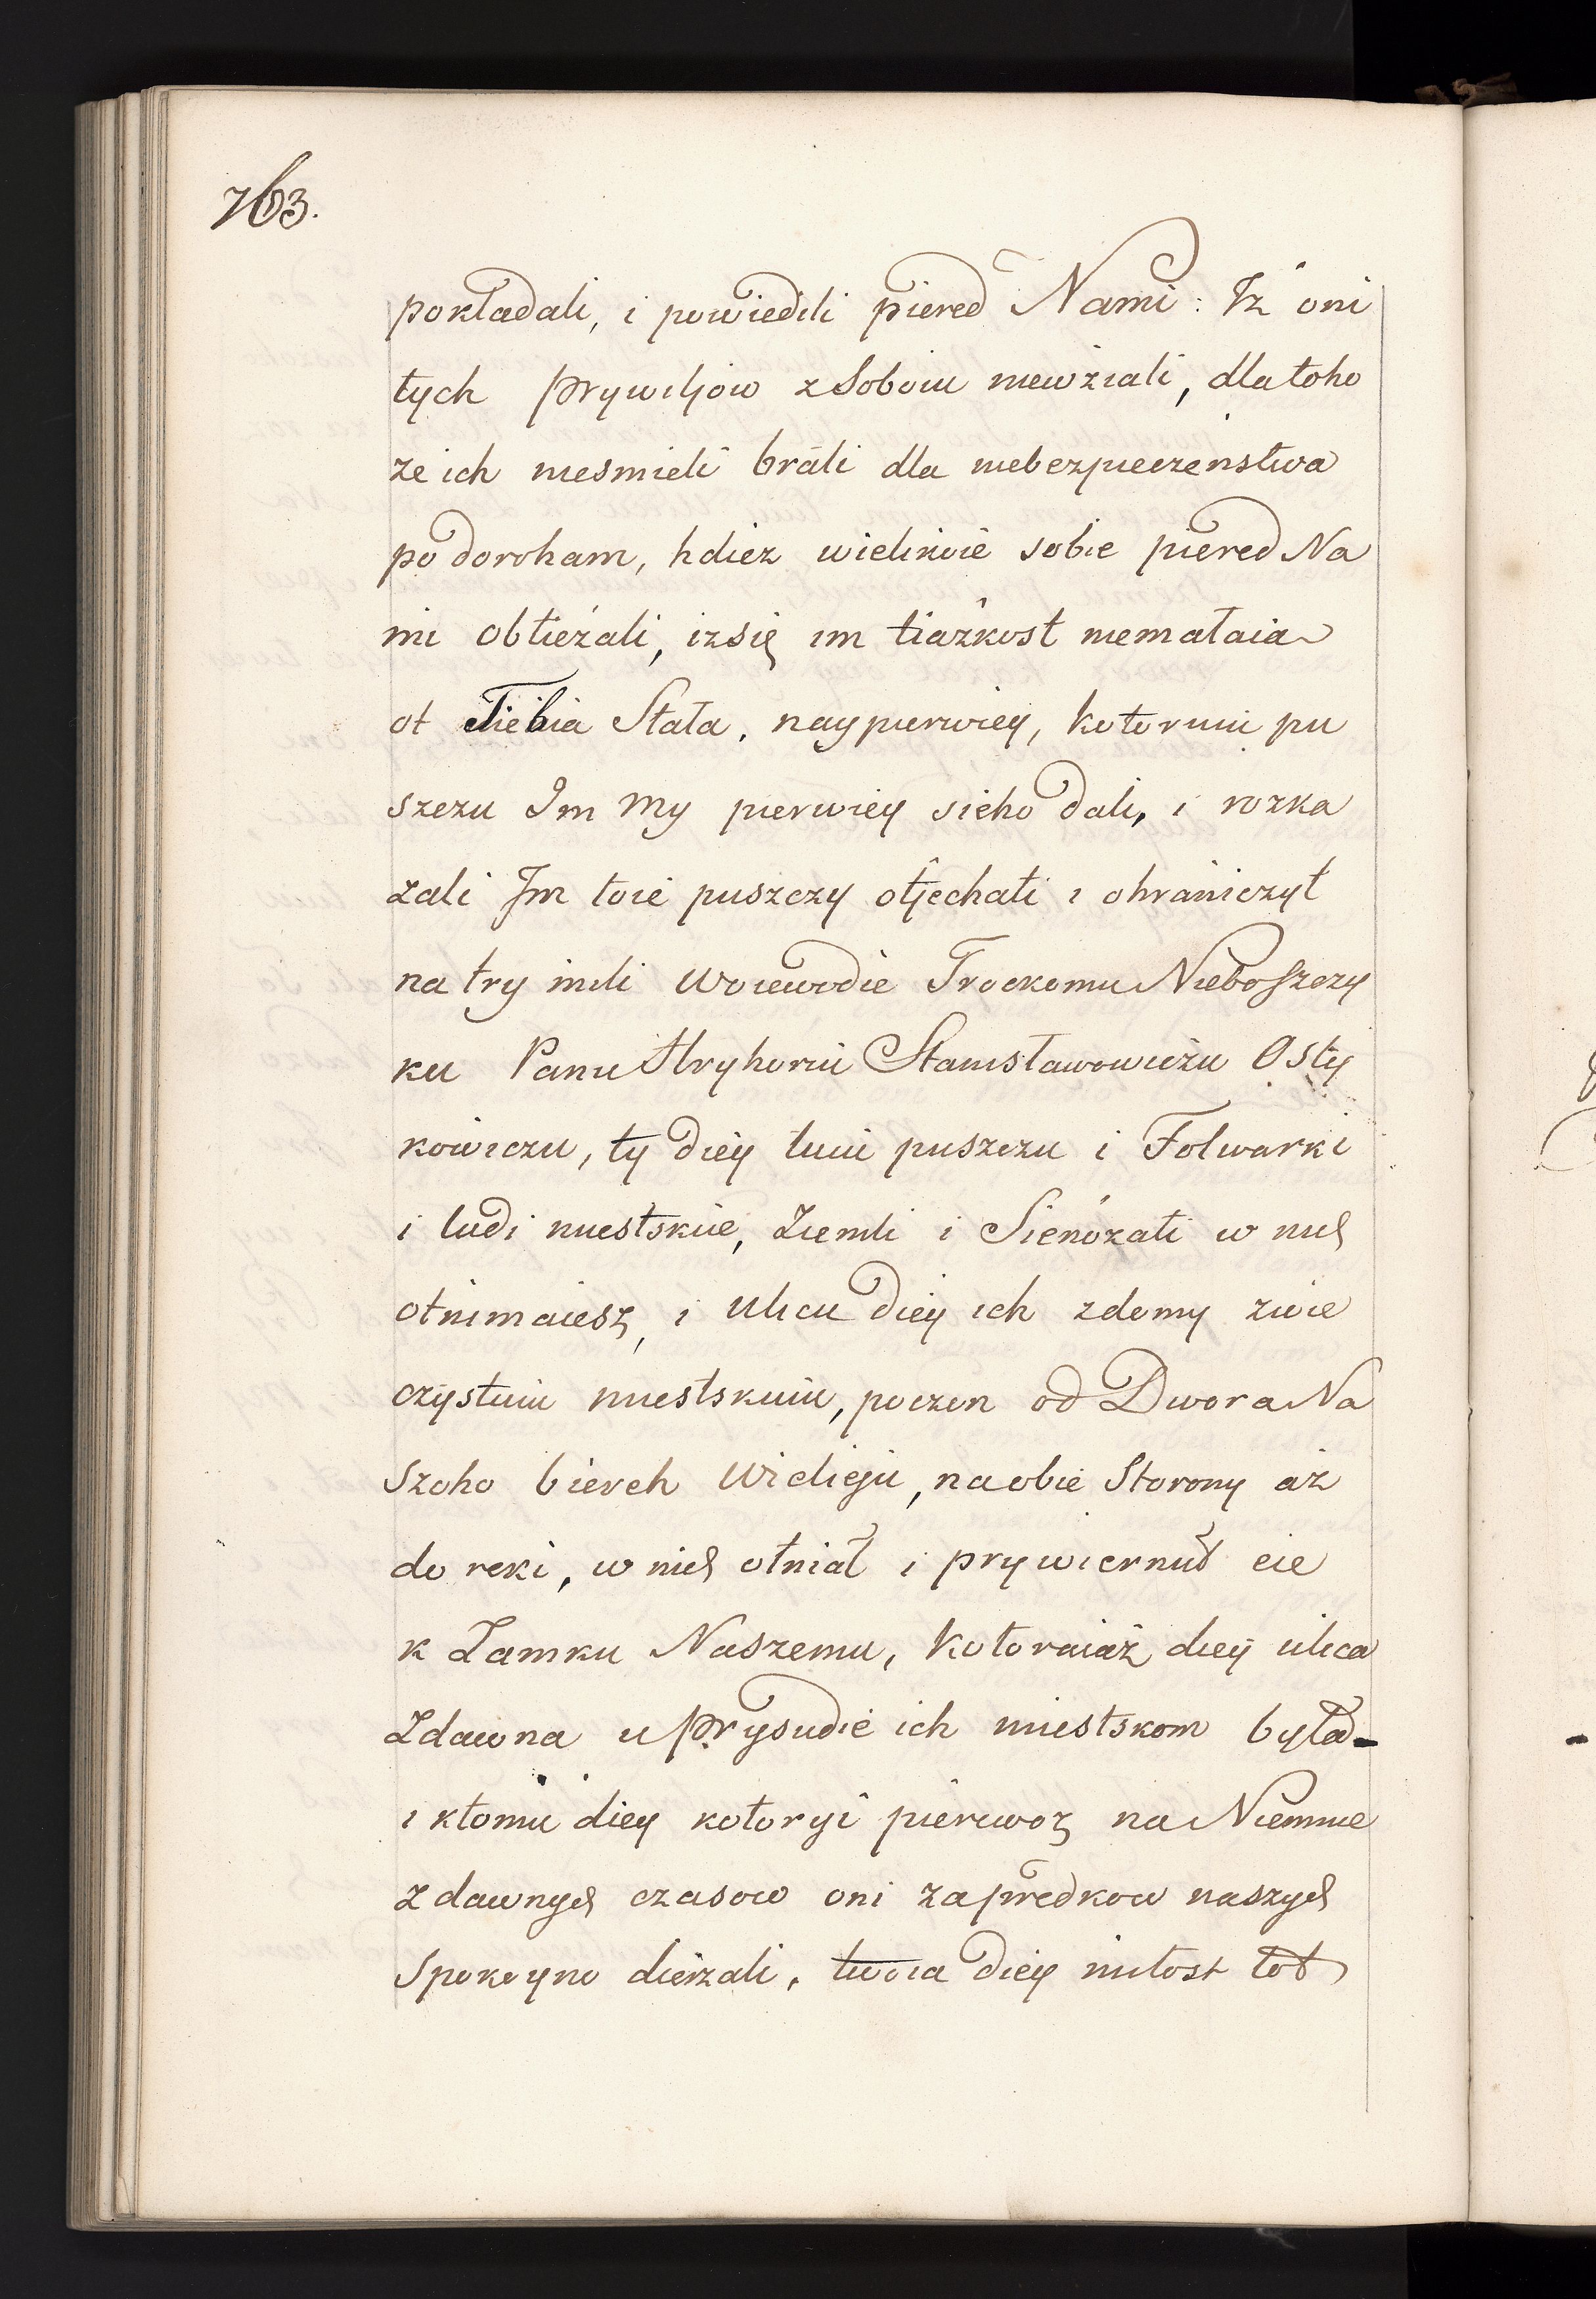 763.
pokładali, i powiedili piered Nami: Iż oni
tych prywiljow z Soboiu niewziali, dla toho
ze ich niesmieli brali dla niebezpieczenstwa
po doroham, hdiez wielikoie sobie pierед Na
mi obtieżali, iz się im tiażkost niemałaia
ot Tiebia Stała, naypierwiey, kotoruiu pu
szczu Im My pierwiey sieho dali, i rozka
zali Im toie puszczy otjechati i ohraniczyt
na try mili Woiewodie Trockomu Nieboszczy
ku Panu Hryhoriu Stanisławowiczu Osty
kowiczu, ty diey tuiu puszczu i Folwarki
i ludi miestskiie, Ziemli i Sienożati w nich
otnimaiesz, i Ulicu diey ich zdomy zwie
czystuiu miestskuiu, poczen od Dwora Na
szoho biereh Wieliejiu, na obie Storony aż
do reki, w nich otniał i prywiernuł eie
k Zamku Naszemu, Kotoraiaż diey ulica
Zdawna u prysudie ich miestskom była
i ktomu diey kotoryi pierewoz na Niemnie
z dawnych czasow oni za predkow naszych
spokoyno dierżali, twoia diey miłost tot